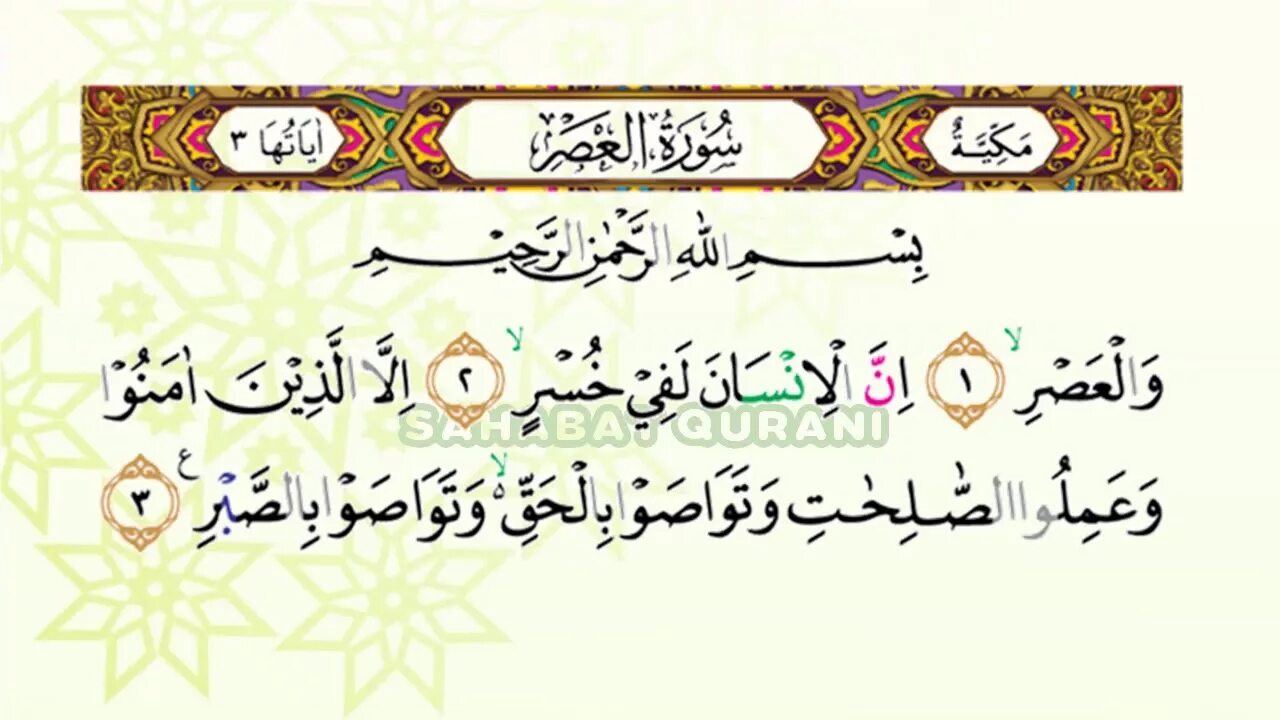 مَكِّيَّةٌ سُوْرَةُ الْعَصْرِ اٰيَاتُهَا ٣
بِسْمِ اللّٰهِ الرَّحْمٰنِ الرَّحِيْمِ
وَالْعَصْرِۙ ١ اِنَّ الْاِنْسَانَ لَفِيْ خُسْرٍۙ ٢ اِلَّا الَّذِيْنَ اٰمَنُوْا
SAHABAT QURANI
وَعَمِلُوا الصّٰلِحٰتِ وَتَوَاصَوْا بِالْحَقِّ ەۙ وَتَوَاصَوْا بِالصَّبْرِ ࣖ ٣